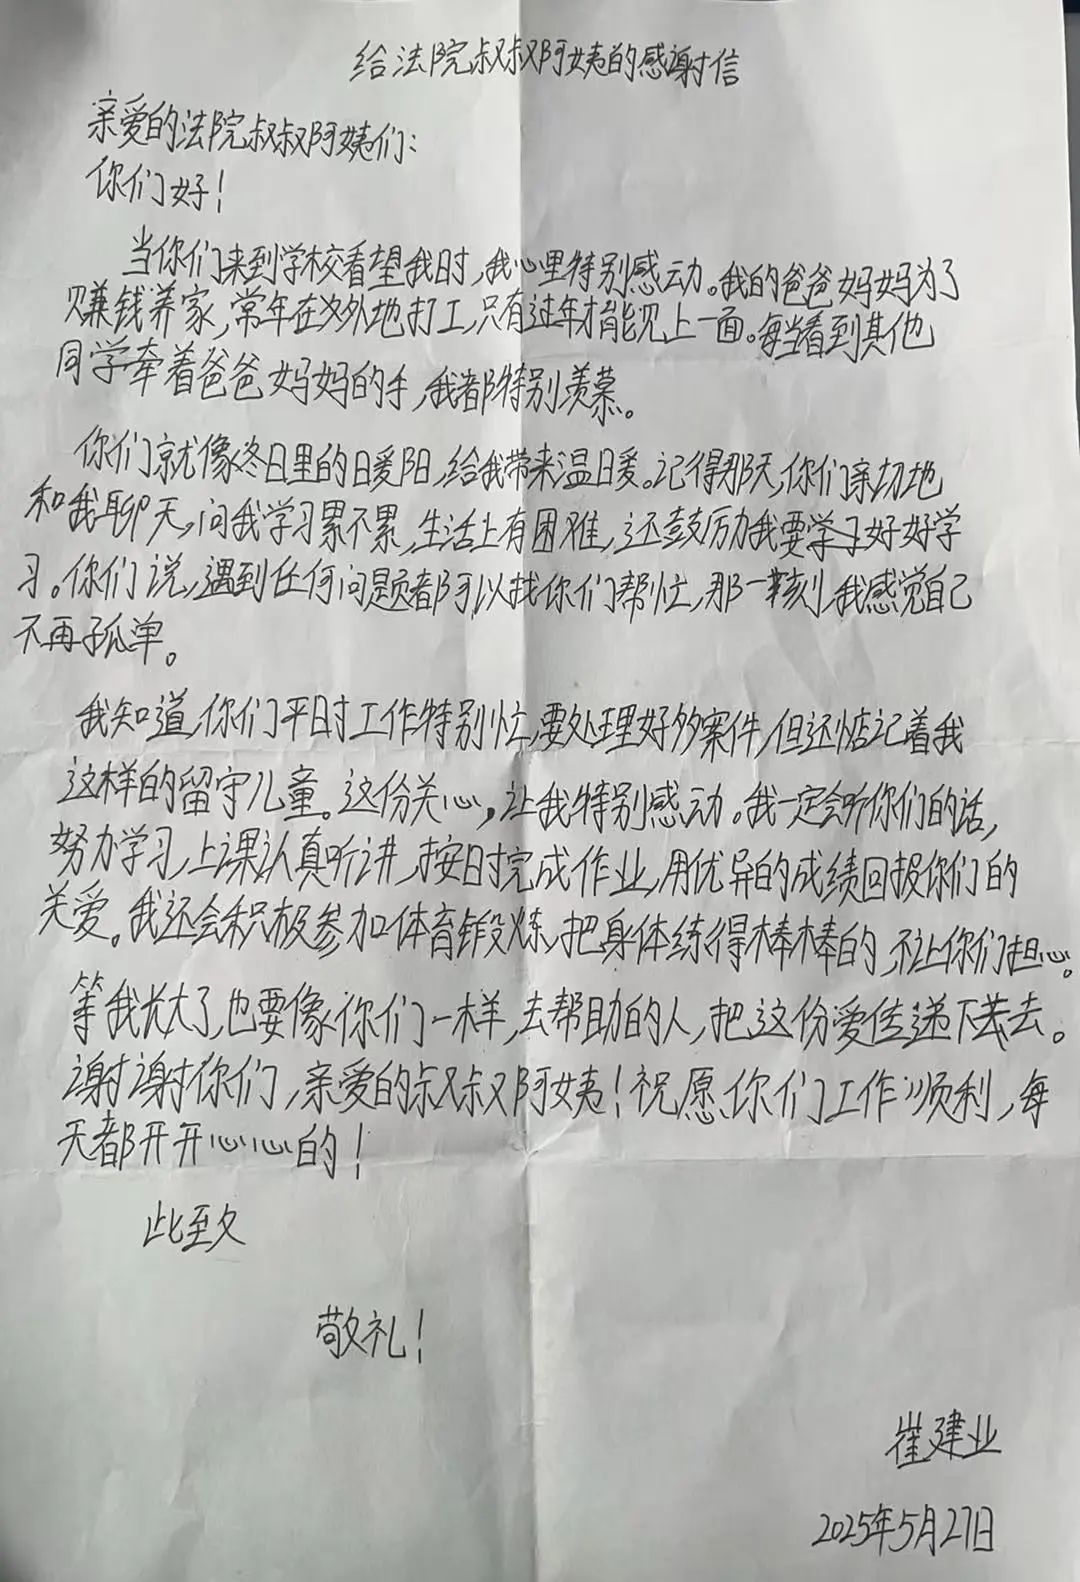 给法院叔叔阿姨的感谢信
亲爱的法院叔叔阿姨们：
你们好！
当你们来到学校看望我时，我心里特别感动。我的爸爸妈妈为了
赚钱养家，常年在外地打工，只有过年才能见上一面。每当看到其他
同学牵着爸爸妈妈的手，我都特别羡慕。
你们就像冬日里的暖阳，给我带来温暖。记得那天，你们亲切地
和我聊天，问我学习累不累，生活上有困难，还鼓厉力我要学习好好学
习。你们说，遇到任何问题都可以找你们帮忙，那一刻，我感觉自己
不再孤单。
我知道，你们平时工作特别忙，要处理好多案件，但还惦记着我
这样的留守儿童。这份关心，让我特别感动。我一定会听你们的话，
努力学习，上课认真听讲，按时完成作业，用优异的成绩回报你们的
关爱。我还会积极参加体育锻炼，把身体练得棒棒的，不让你们担心。
等我长大了，也要像你们一样，去帮助的人，把这份爱传递下去。
谢谢你们，亲爱的叔叔阿姨！祝愿你们工作顺利，每
天都开开心心的！
此至久
敬礼！
崔建业
2025年5月27日